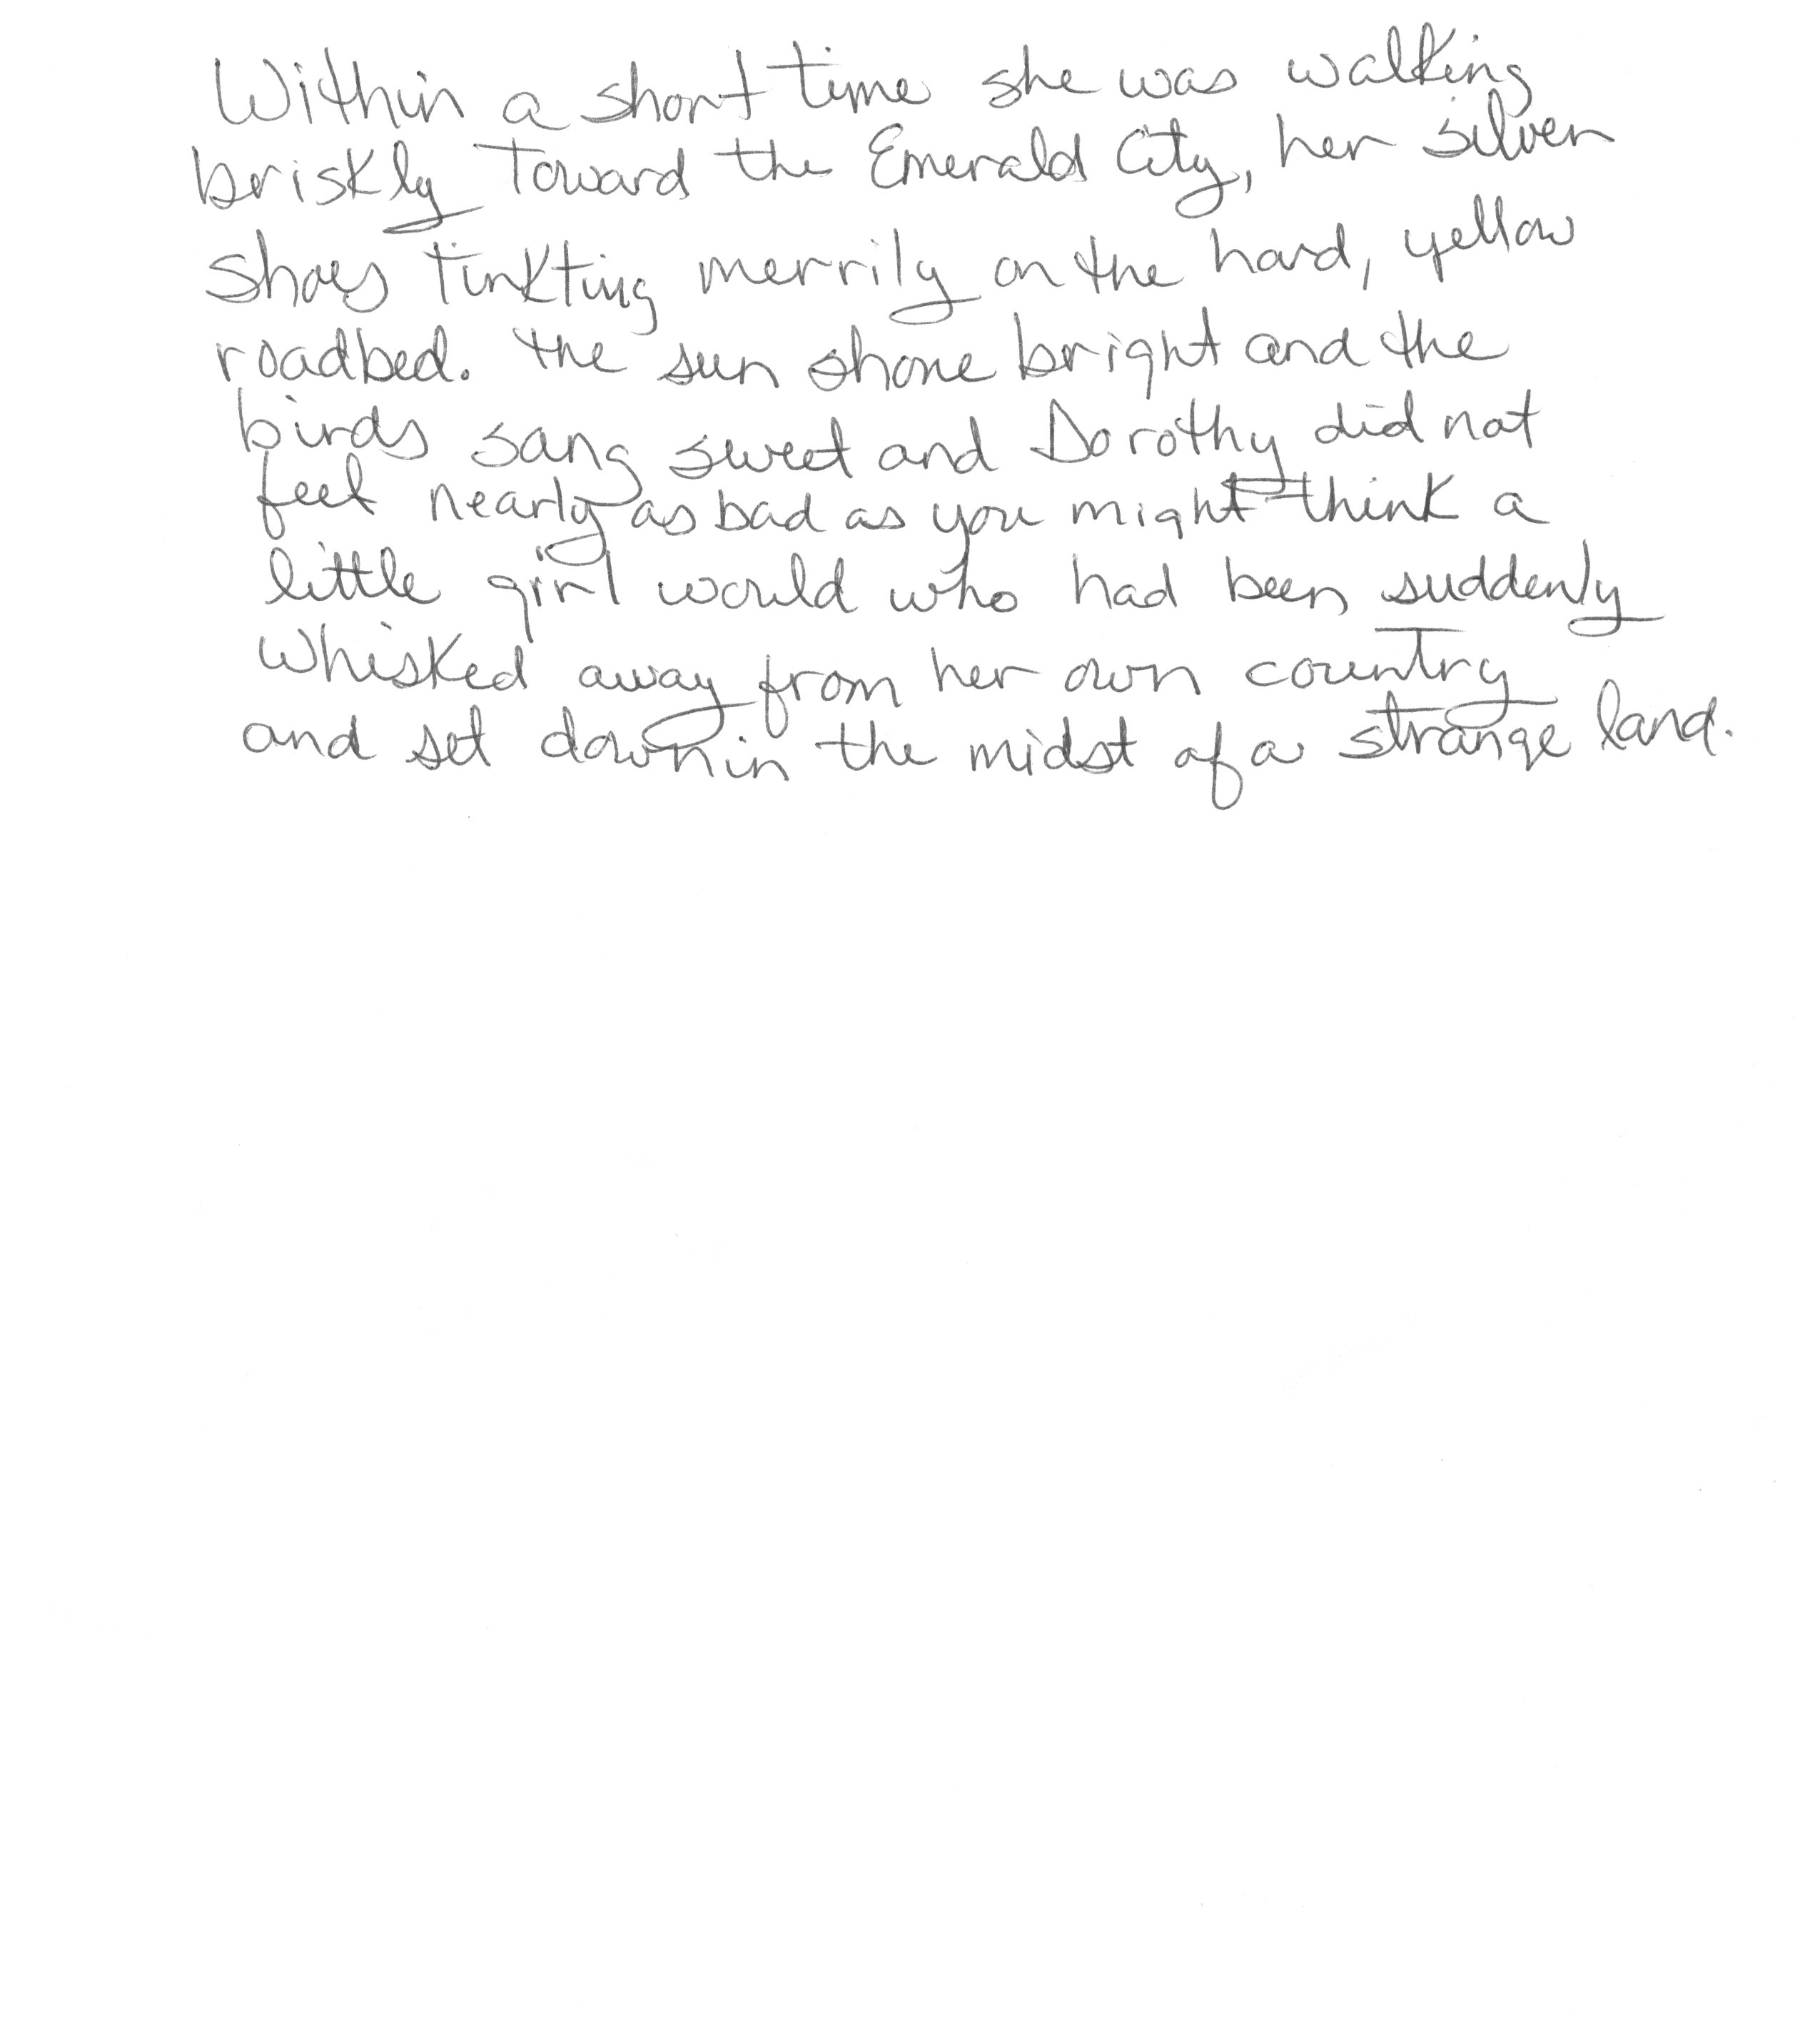 Within a short time she was walking
briskly Toward the Emerald City, her silver
shoes tinkting merrily on the hard, yellow
roadbed. the sun shone bright and the
birds sang sweet and Dorothy did not
feel nearly as bad as you might think a
little girl would who had been suddenly
whisked away from her own country
and set down in the midst of a strange land.